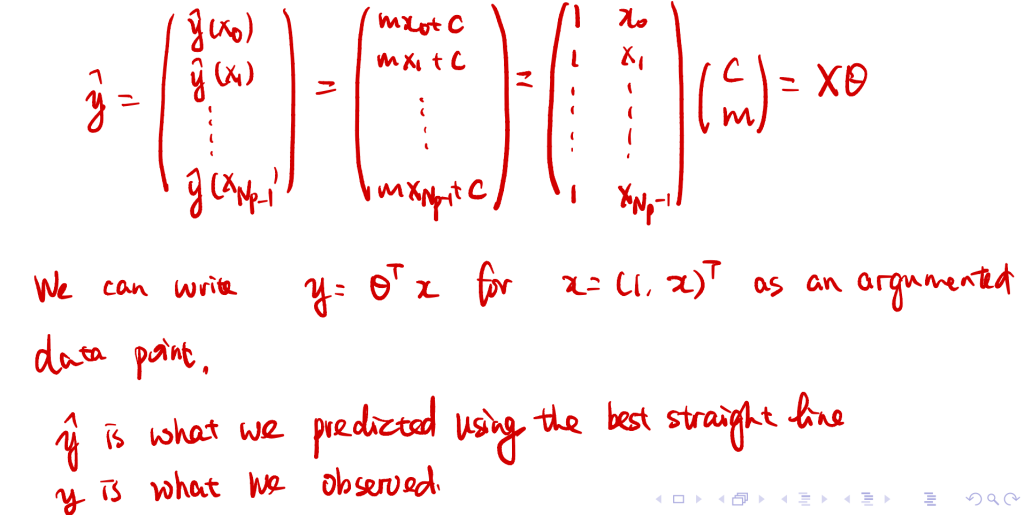 ŷ = ( ŷ(x₀) ŷ(x₁) ⋮ ŷ(x_{Np-1}) ) = ( mx₀+c mx₁+c ⋮ mx_{Np-1}+c ) = ( 1 x₀ 1 x₁ ⋮ ⋮ 1 x_{Np-1} ) ( c m ) = Xθ
We can write y = θᵀ x for x = (1, x)ᵀ as an argumented
data point.
ŷ is what we predicted using the best straight line
y is what we observed.